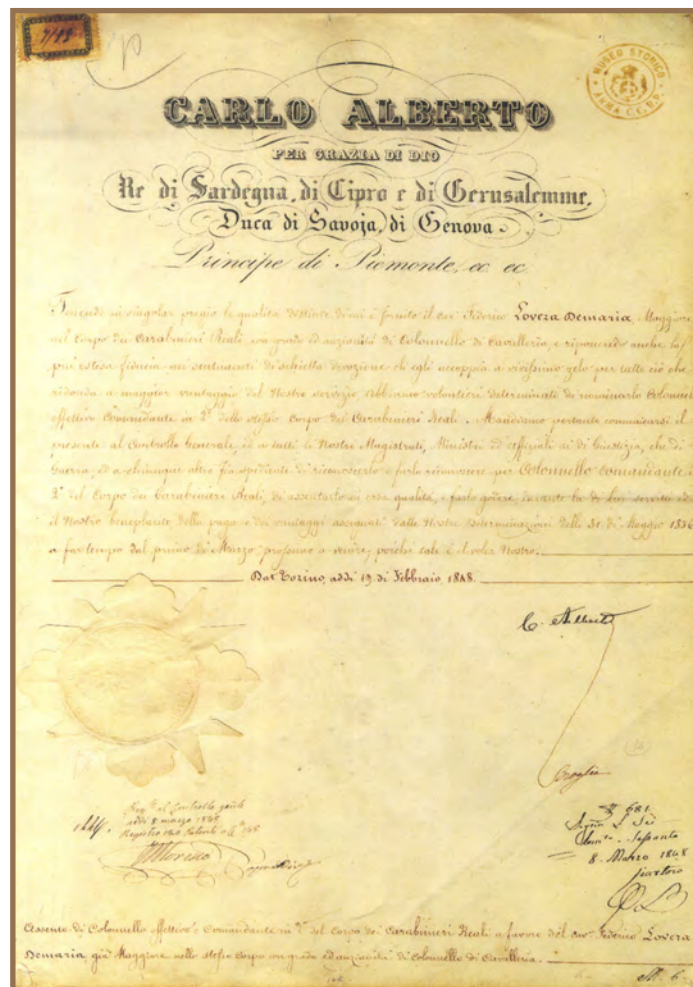 7/48
MUSEO STORICO
ARMA CC.RR.
CARLO ALBERTO
PER GRAZIA DI DIO
Re di Sardegna, di Cipro e di Gerusalemme,
Duca di Savoja, di Genova
Principe di Piemonte, ec. ec.
Tenendo in singolar pregio le qualità distinte di cui è fornito il cav. Federico Lovera Demaria, Maggiore
nel Corpo dei Carabinieri Reali, con grado ed anzianità di Colonnello di Cavalleria, e riponendo anche la
più estesa fiducia nei sentimenti di schietta devozione ch'egli accoppia a vivissimo zelo per tutto ciò che
ridonda a maggior vantaggio del Nostro servizio abbiamo volontieri determinati di nominarlo Colonnello
effettivo Comandante in 2º dello stesso Corpo dei Carabinieri Reali. Mandiamo pertanto comunicarsi il
presente al Controllo Generale, ed a tutti li Nostri Magistrati, Ministri ed Uffiziali sì di Giustizia, che di
Guerra, ed a chiunque altro fia spediente di riconoscerlo e farlo riconoscere per Colonnello Comandante in
2º del Corpo dei Carabinieri Reali, di assentarlo in essa qualità, e farlo godere, durante la di lui servitù ed
il Nostro beneplacito della paga e dei vantaggi assegnati dalle Nostre Determinazioni delli 31 di Maggio 1836
a far tempo dal primo di Marzo prossimo a venire, perchè tale è il voler Nostro.
Dat. Torino, addì 19 di Febbraio 1848.
C. Alberto
Broglia
al Controllo gen.le
addì 8 marzo 1848
Registro
Moreno
681
8. Marzo 1848
Assento di Colonnello effettivo e Comandante in 2º del Corpo dei Carabinieri Reali a favore del cav. Federico Lovera
Demaria, già Maggiore nello stesso Corpo con grado ed anzianità di Colonnello di Cavalleria.
M. 6.